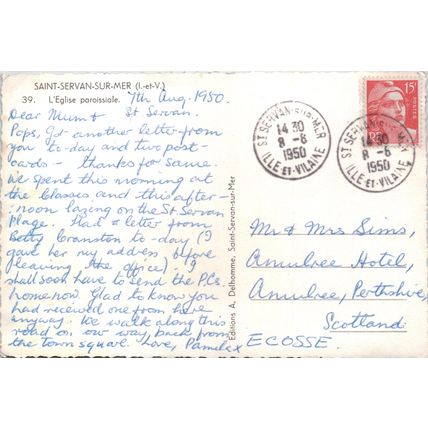 SAINT-SERVAN-SUR-MER (I.-et-V.)
39. L'Eglise paroissiale.
7th Aug. 1950.
St Servan.
Dear Mum &
Pops, Got another letter from
you to-day and two post-
cards - thanks for same.
We spent this morning at
the classes and this after-
noon lazing on the St Servan
Plage. Had a letter from
Betty Cranston to-day (I
gave her my address before
leaving the office). I
shall soon have to send the P.Cs.
home now. Glad to know you
had received one from here
anyway. We walk along this
road on our way back from
the town square. Love, Pamela x
Editions A. Delhomme, Saint-Servan-sur-Mer
ST SERVAN-SUR-MER
14 30
8 -8
1950
ILLE-ET-VILAINE
ST SERVAN-SUR-MER
14 30
8 -8
1950
ILLE-ET-VILAINE
15F
POSTES
Mr & Mrs Sims,
Amulree Hotel,
Amulree, Perthshire,
Scotland
ECOSSE.